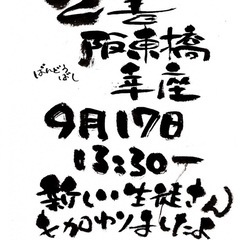 阪東橋
ばんどうばし
幸座
9月17日
13:30ー
新しい生徒さん
も加わりましたよ